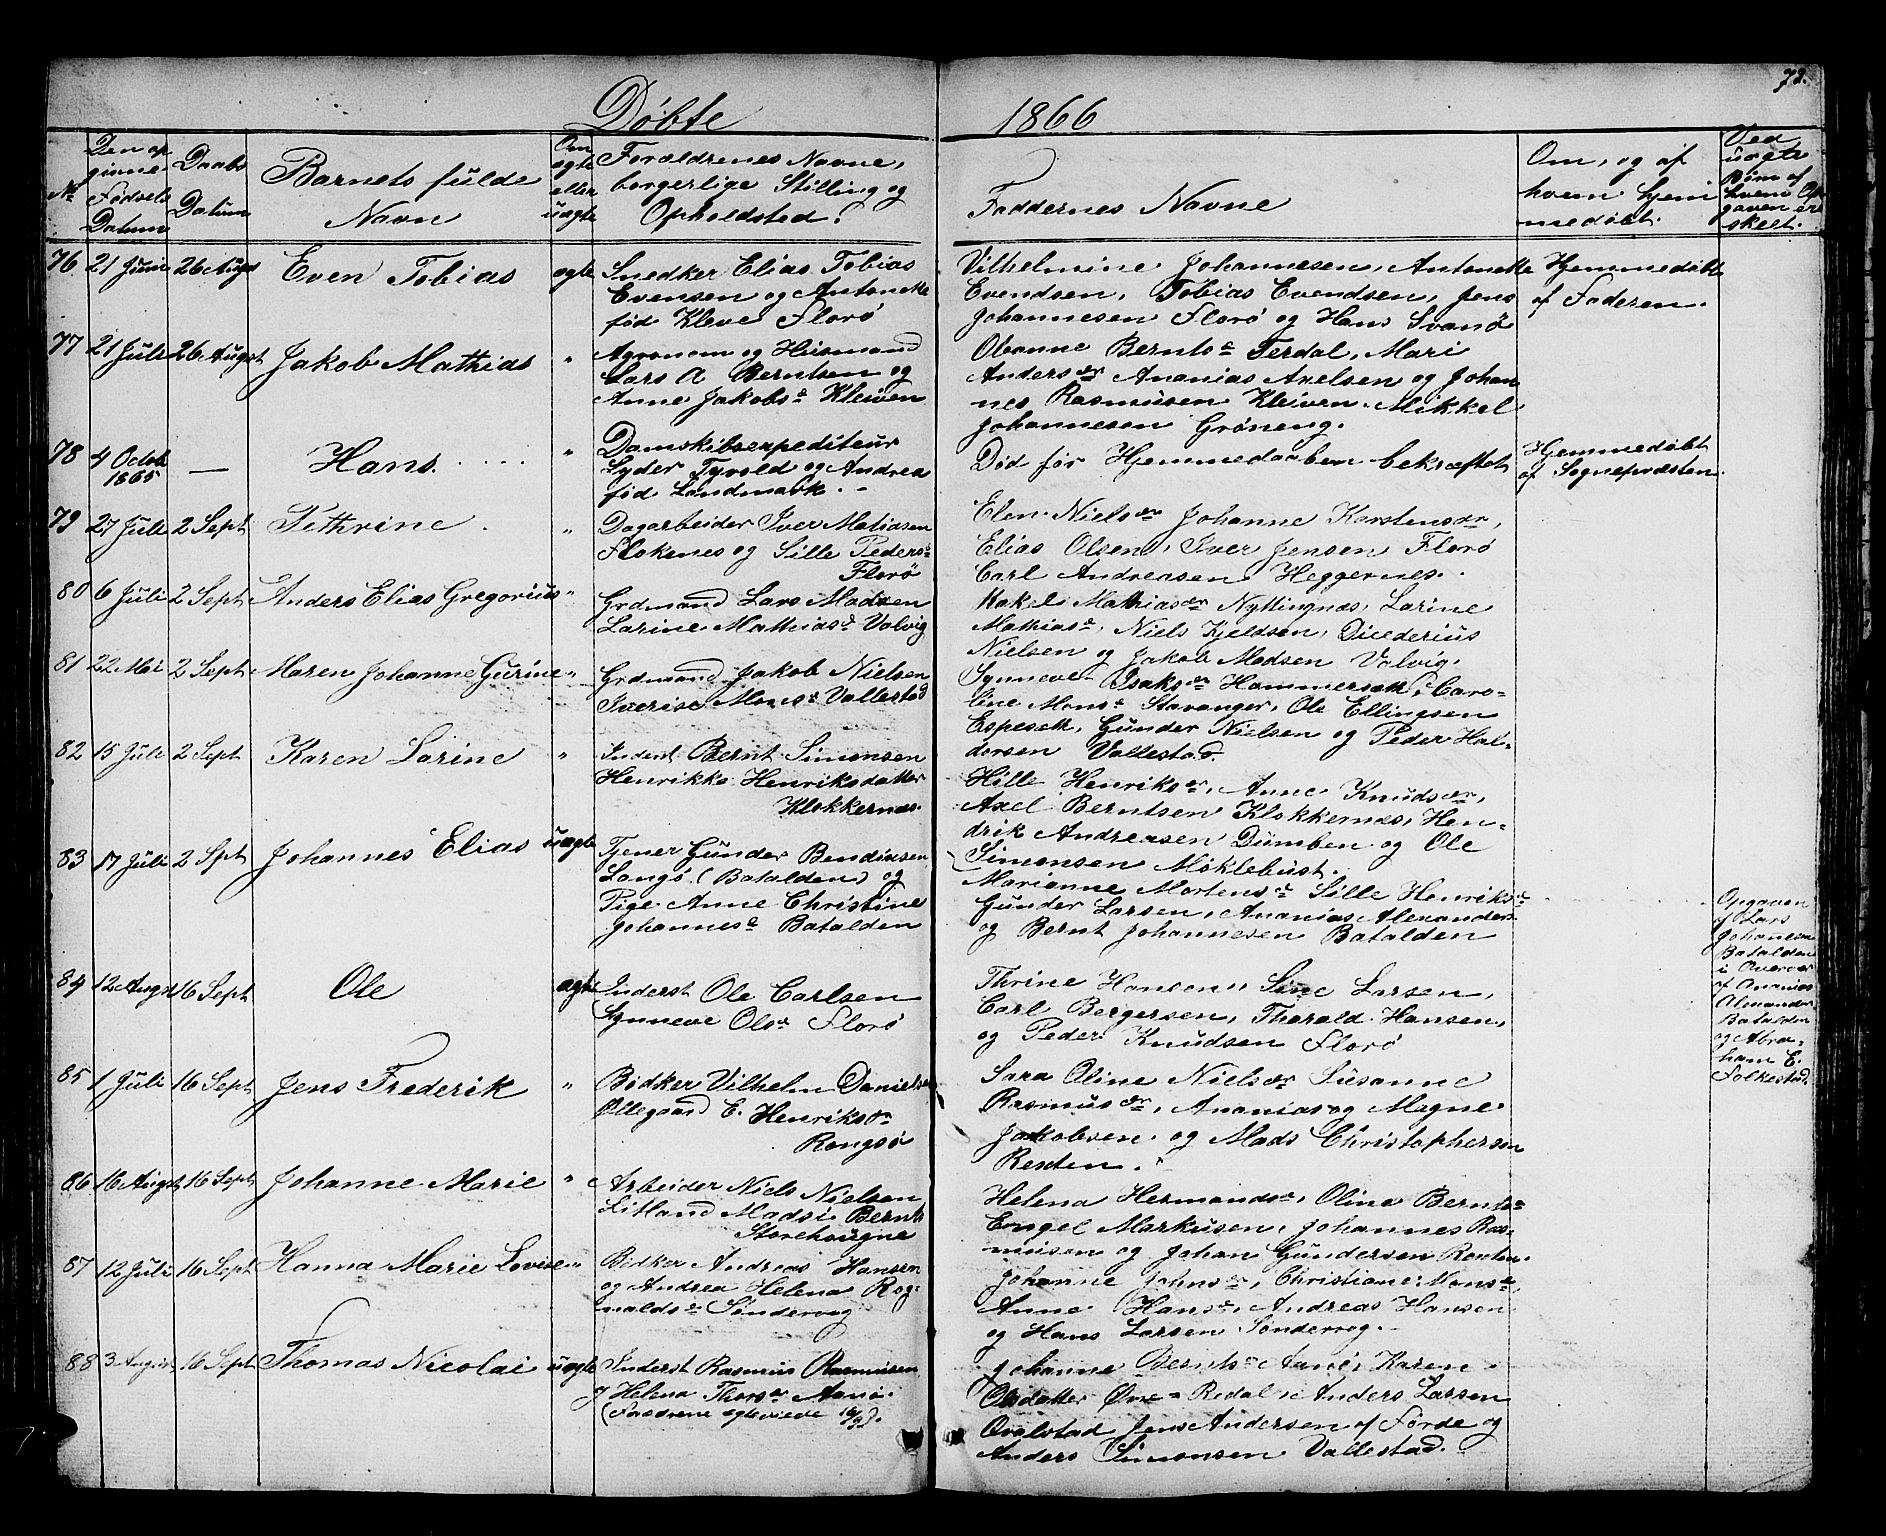 78.
Døbte
1866
No
Den op
givne
Fødsels
Datum
Daabs
Datum
Barnets fulde
Navn
Om
ægte
eller
uægte
Forældrenes Navne,
borgerlige Stilling og
Opholdsted.
Faddernes Navne
Om, og af
hvem hjem
medøbt.
Ved
uægte
Børn af
hvem Op
gaven er
skeet.
76 21 Juni 26 Augst Even Tobias ægte
Snedker Elias Tobias
Evensen og Antonette
fød Kleve Florø
Vilhelmine Johannesen, Antonette
Evendsen, Tobias Evendsen, Jens
Johannesen Florø og Hans Svanø
Hjemmedøbt
af Faderen.
77 21 Juli 26 Augst Jakob Mathias "
Agronom og Husmand
Lars A Berntsen og
Anne Jakobs d Kleiven
Oleanne Bernts d Terdal, Mari
Anders dr Ananias Axelsen og Johan
nes Rasmusen Kleiven. Mikkel
Johannesen Grøneng.
78 4 Octob
1865 — Hans. "
Damskibsexpediteur
Lyder Tyvold og Andrea
fød Landmark. -
Død før Hjemmedaaben bekræftet
Hjemmedøbt
af Sognepræsten.
79 27 Juli 2 Sept Pethrine "
Dagarbeider Iver Matiasen
Flokenes og Sille Peders d
Florø
Elen Niels dr Johanne Karstens dr,
Elias Olsen, Iver Jensen Florø
Carl Andreasen Heggernes.
80 6 Juli 2 Sept Anders Elias Gregorius "
Grdmand Lars Madsen
Larine Mathias d Valvig
Rakel Mathias dr Nyttingnes, Larine
Mathias d, Niels Kjeldsen, Diederius
Nielsen og Jakob Madsen Valvig.
81 22 Mai 2 Sept Maren Johanne Gurine "
Grdmand Jakob Nielsen
Iverise Mons d Vallestad
Synneve Isaks dr Hammersæth, Caro-
line Mons d Stavanger, Ole Ellingsen
Espeseth, Gunder Nielsen og Peder Hal-
dorsen Vallestad.
82 15 Juli 2 Sept Karen Larine "
Inderst Bernt Simonsen
Henrikke Henriksdatter
Klokkernes.
Hille Henriks dr, Anne Knuds dr,
Axel Berntsen Klokkernes, Hen-
drik Andreasen Dumben og Ole
Simonsen Møklebust.
83 17 Juli 2 Spt Johannes Elias uægte
Tjener Gunder Bendixsen
Langø (Batalden) og
Pige Anne Christine
Johannes d Batalden
Marianne Mortens d Sille Henriks d
Gunder Larsen, Ananias Alexanders
og Bernt Johannesen Batalden
Opgaven
af Lars
Johannesen
Batalden
i Overvær
af Ananias
Batalden
og Abra-
ham E.
Folkestad.
84 12 Augst 16 Sept Ole ægte
Inderst Ole Carlsen
Synneve Ols dr Florø
Thrine Hansen, Sine Larsen,
Carl Bergersen, Tharald Hansen,
og Peder Knudsen Florø
85 1 Juli 16 Sept Jens Frederik "
Bødker Vilhelm Danielsen
Ollegaard E. Henriks dr
Rongsø
Sara Oline Niels dr Susanne
Rasmus dr, Ananias og Magne
Jakobsen og Mads Christophersen
Resten.
86 16 Augst 16 Sept Johanne Marie "
Arbeider Niels Nielsen
Litland Madsi Bernts
Storehougne
Helena Hermands dr, Oline Bernts d
Engel Markusen, Johannes Ras-
musen og Johan Gundersen Resten.
87 12 Juli 16 Sept Hanna Marie Lovise "
Bødker Andreas Hansen
og Andrea Helena Rog-
nalds d Søndervog
Johanne Johns dr, Christiane Mons d,
Anne Hans d, Andreas Hansen
og Hans Larsen Søndervog.
88 3 August 16 Sept Thomas Nicolai uægte
Inderst Rasmus Rasmusen
og Helena Thors dr Aanø.
(Forældrene egteviede 16/9 d.
Johanne Bernts d Aanø, Karen
Olsdatter Øvre-Redal, Anders Larsen
Qvalstad Jens Andersen af Førde og
Anders Simonsen Vallestad.